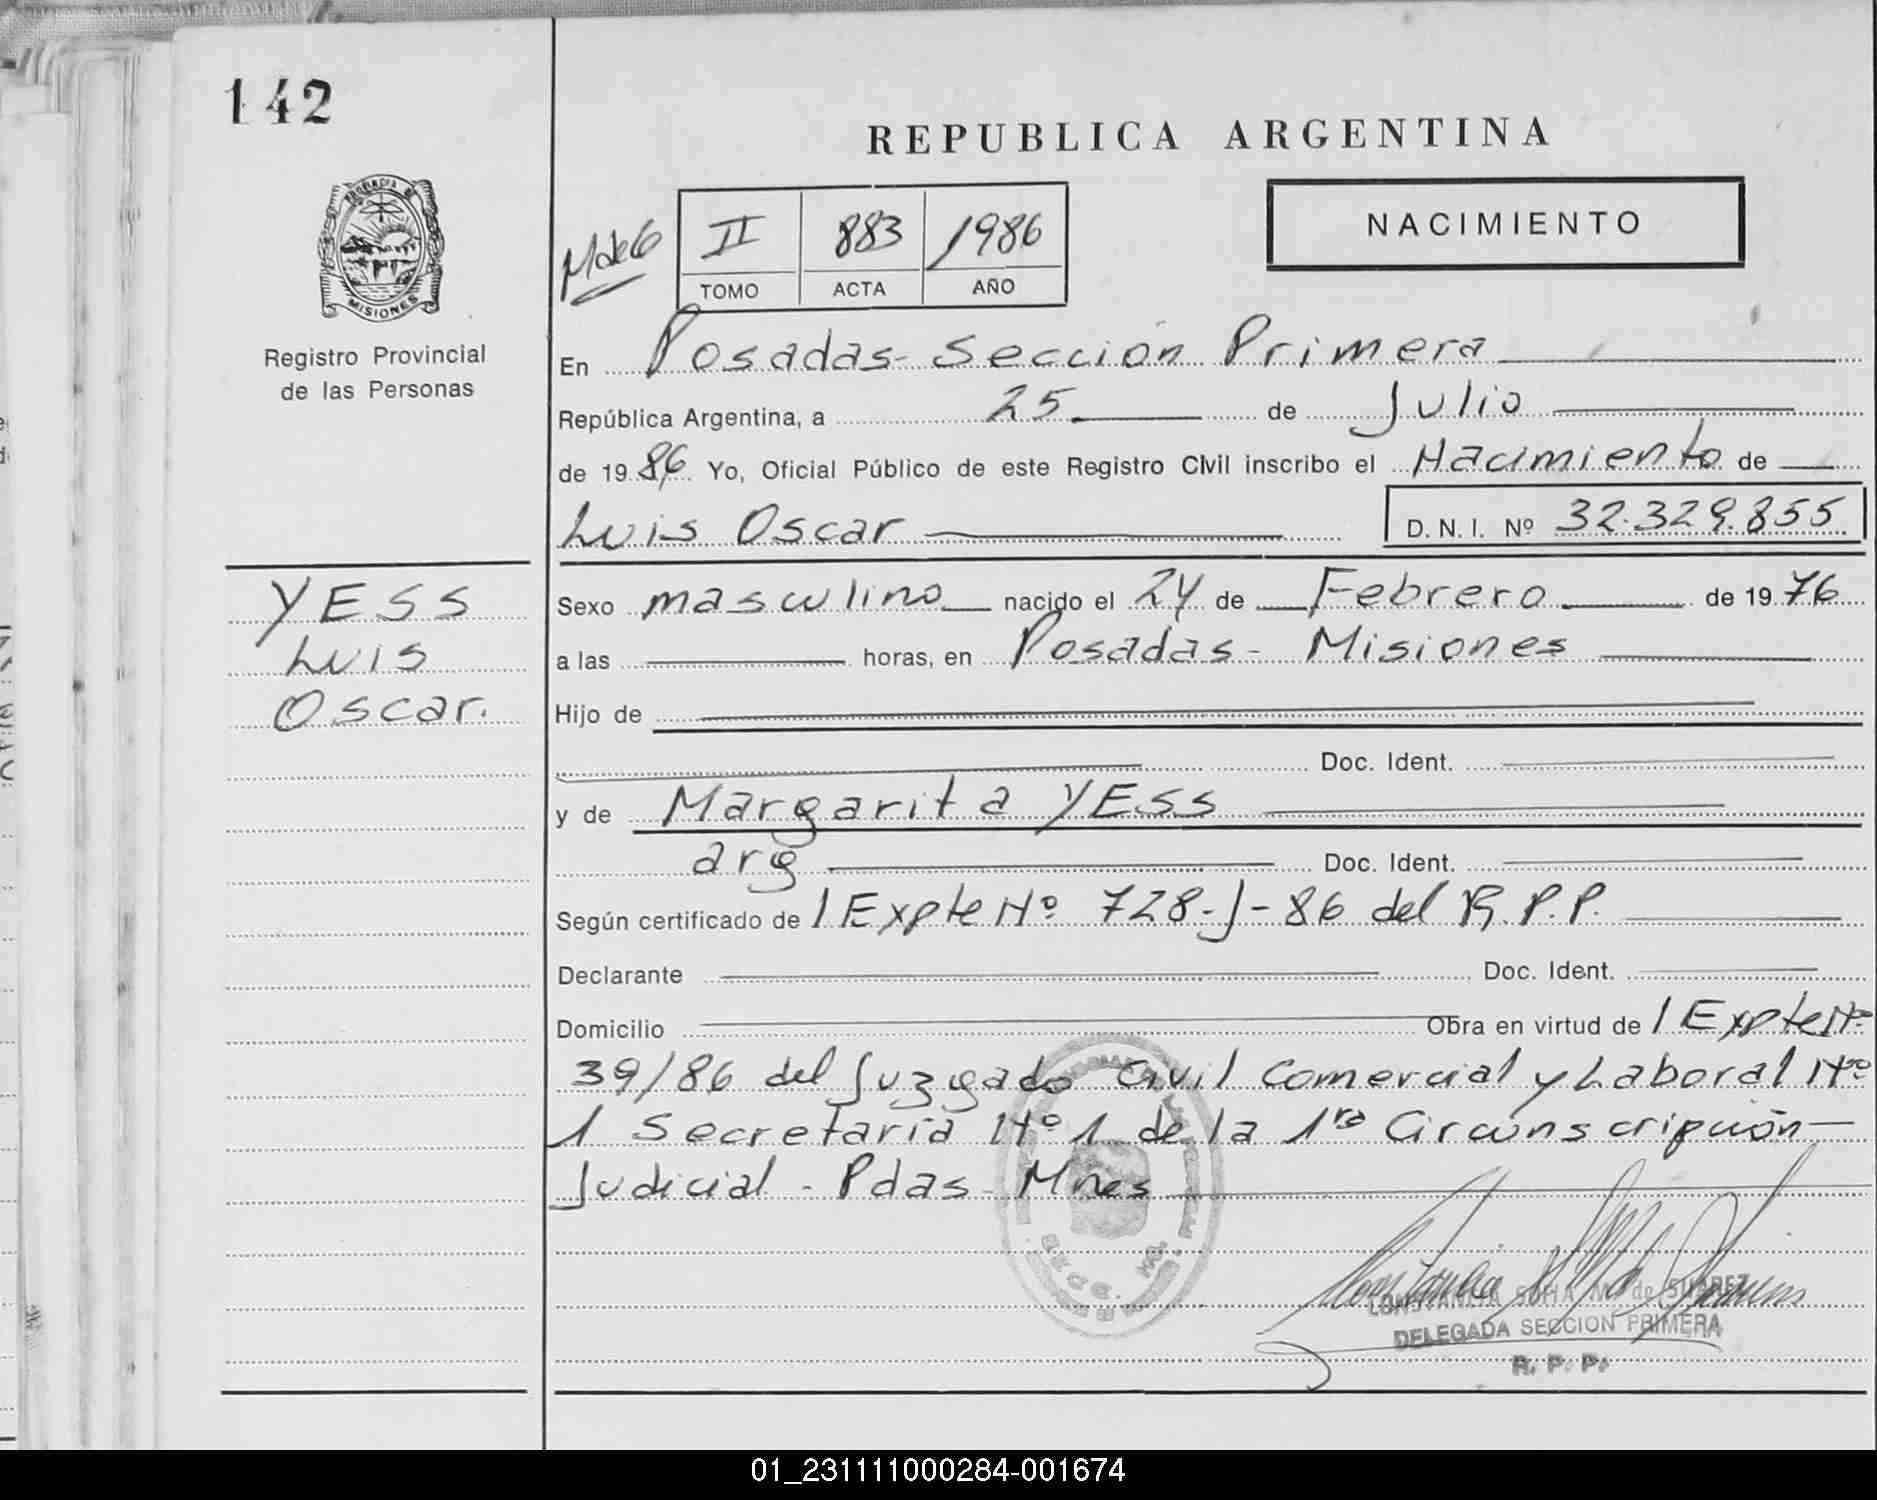 142
REPUBLICA ARGENTINA
PROVINCIA DE
MISIONES
Registro Provincial
de las Personas
NACIMIENTO
II 883 1986
TOMO ACTA AÑO
En Posadas - Sección Primera
República Argentina, a 25 de Julio
de 19 86 Yo, Oficial Público de este Registro Civil inscribo el Nacimiento de
Luis Oscar D. N. I. Nº 32.329.855
YESS
Luis
Oscar.
Sexo masculino nacido el 24 de Febrero de 19 76
a las horas, en Posadas - Misiones
Hijo de
Doc. Ident.
y de Margarita YESS
arg Doc. Ident.
Según certificado de / Expte Nº 728-J-86 del R.P.P.
Declarante Doc. Ident.
Domicilio Obra en virtud de / Expte Nº
39/86 del Juzgado Civil Comercial y Laboral Nº
1 Secretaria Nº 1 de la 1ra Circunscripción
Judicial - Pdas - Mnes
SOFIA M. de SUAREZ
DELEGADA SECCION PRIMERA
R. P. P.
01_231111000284-001674